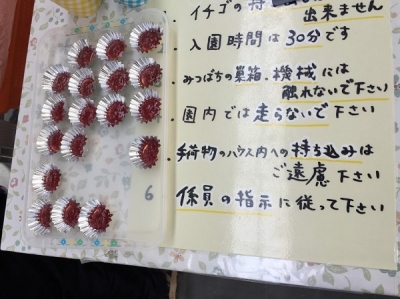 イチゴの持
出来ません
入園時間は30分です
みつばちの巣箱、機械には
触れないで下さい
園内では走らないで下さい
手荷物のハウス内への持ち込みは
ご遠慮下さい
6 係員の指示に従って下さい